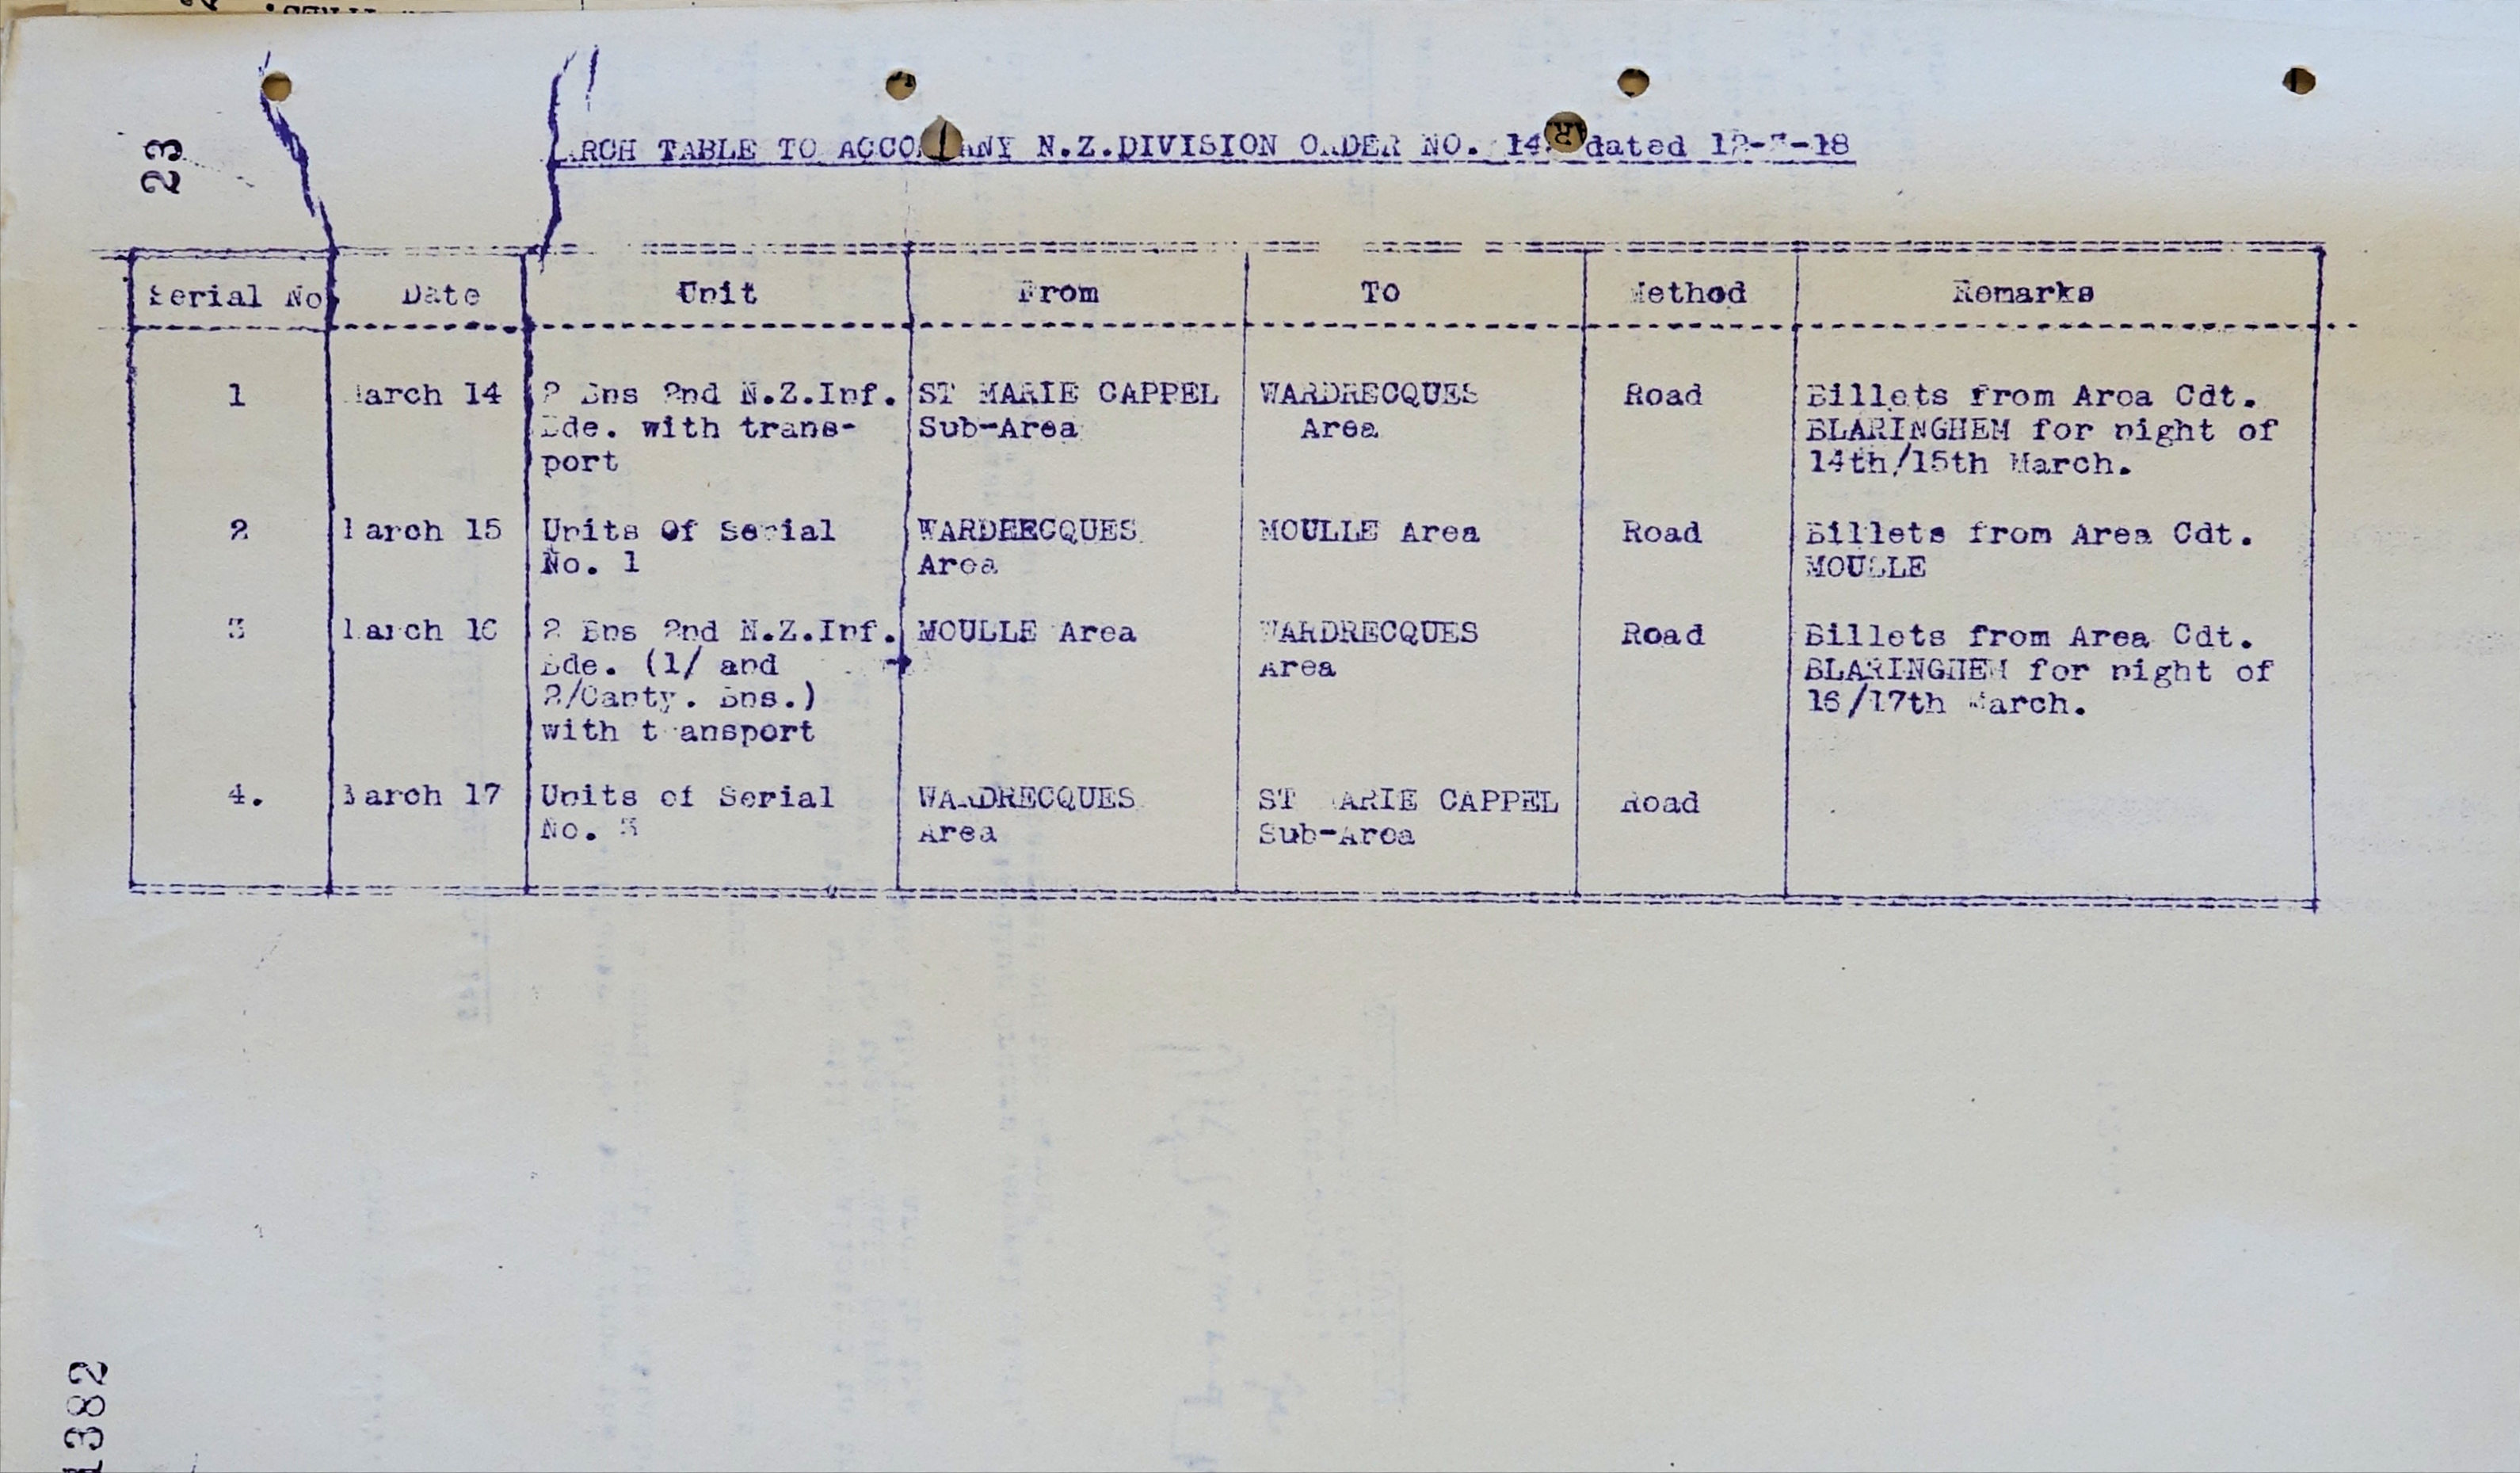 23
MARCH TABLE TO ACCOMPANY N.Z.DIVISION ORDER NO. 14 dated 12-3-18
Serial No Date Unit From To Method Remarks
1 March 14 2 Bns 2nd N.Z.Inf. ST MARIE CAPPEL WARDRECQUES Road Billets from Area Cdt.
Bde. with trans- Sub-Area Area BLARINGHEM for night of
port 14th/15th March.
2 March 15 Units Of Serial WARDRECQUES MOULLE Area Road Billets from Area Cdt.
No. 1 Area MOULLE
3 March 16 2 Bns 2nd N.Z.Inf. MOULLE Area WARDRECQUES Road Billets from Area Cdt.
Bde. (1/ and Area BLARINGHEM for night of
2/Canty. Bns.) 16/17th March.
with transport
4. March 17 Units of Serial WARDRECQUES ST MARIE CAPPEL Road
No. 3 Area Sub-Area
1382